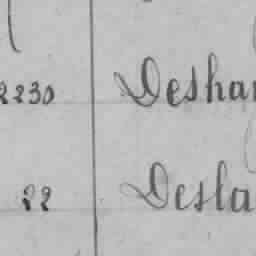 2230 Deshar
22 Desla